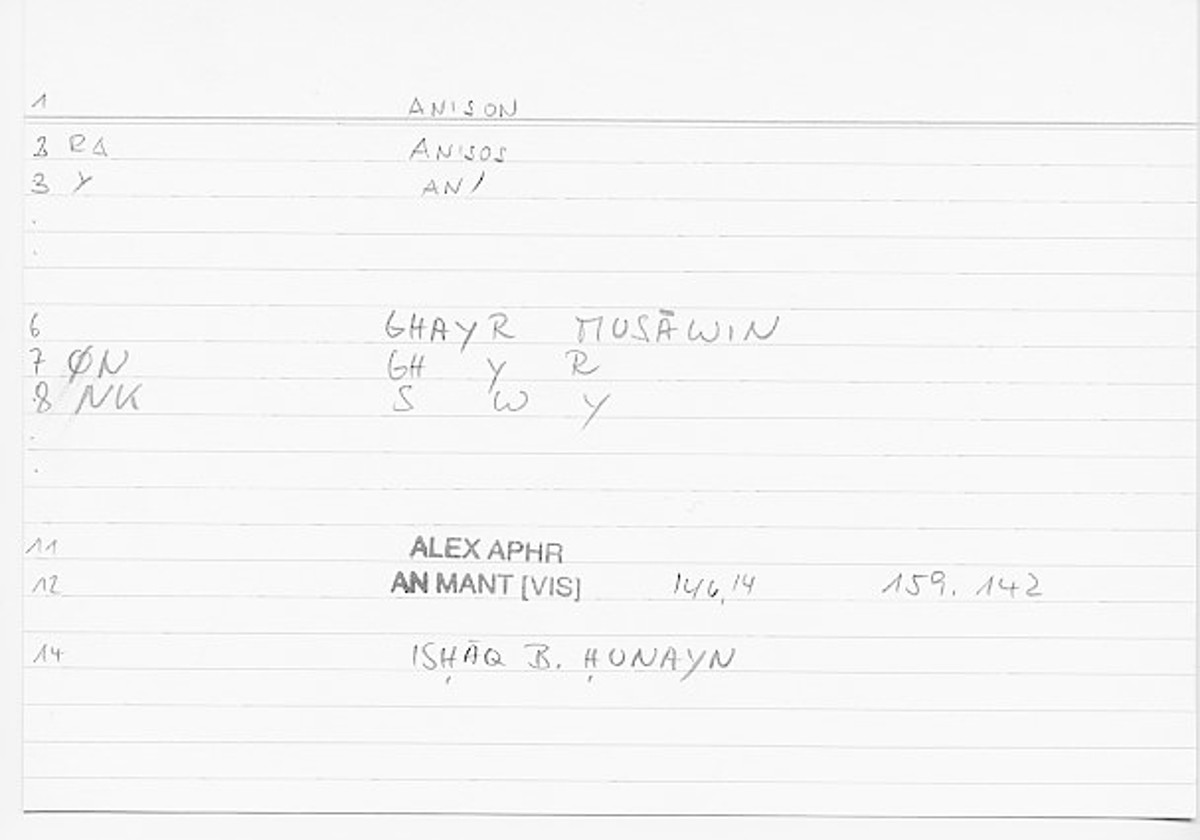 1 ANISON
3 RA ANISOS
3 Y AN/
.
.
6 GHAYR MUSĀWIN
7 ØN GH Y R
8 NK S W Y
.
.
11 ALEX APHR
12 AN MANT [VIS] 146,14 159. 142
14 ISḤĀQ B. ḤUNAYN